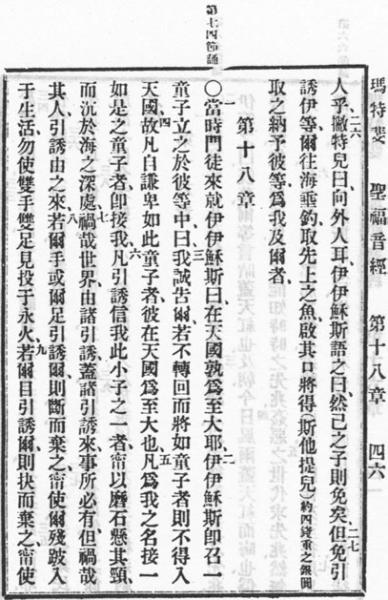 第七十四節誦
瑪特斐 聖福音經 第十八章 四六
人乎撇特兒曰向外人耳伊伊穌斯語之曰然己之子則免矣但免引
誘伊等爾往海垂釣取先上之魚啟其口將得(斯他提兒)約四錢重之銀圓
取之納予彼等爲我及爾者
第十八章
○當時門徒來就伊伊穌斯曰在天國孰爲至大耶伊伊穌斯卽召一
童子立之於彼等中曰我誠吿爾若不轉回而將如童子者則不得入
天國故凡自謙卑如此童子者彼在天國爲至大也凡爲我之名接一
如是之童子者卽接我凡引誘信我此小子之一者甯以磨石懸其頸
而沉於海之深處禍哉世界由諸引誘蓋諸引誘來事所必有但禍哉
其人引誘由之來若爾手或爾足引誘爾則斷而棄之甯使爾殘跛入
于生活勿使雙手雙足見投于永火若爾目引誘爾則抉而棄之甯使